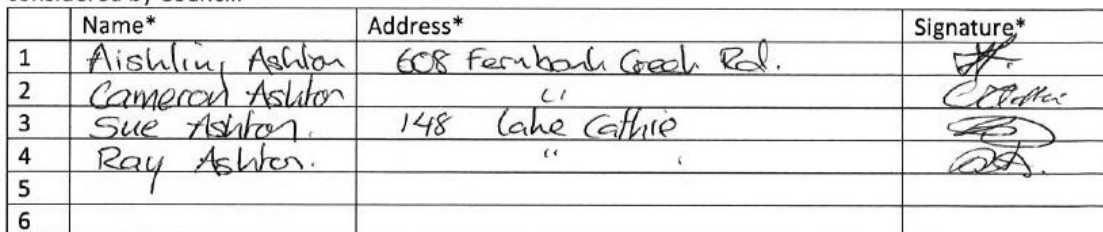 Name* Address* Signature*
1 Aishling Ashton 608 Fernbank Creek Rd.
2 Cameron Ashton "
3 Sue Ashton. 148 Lake Cathie
4 Ray Ashton. "
5
6